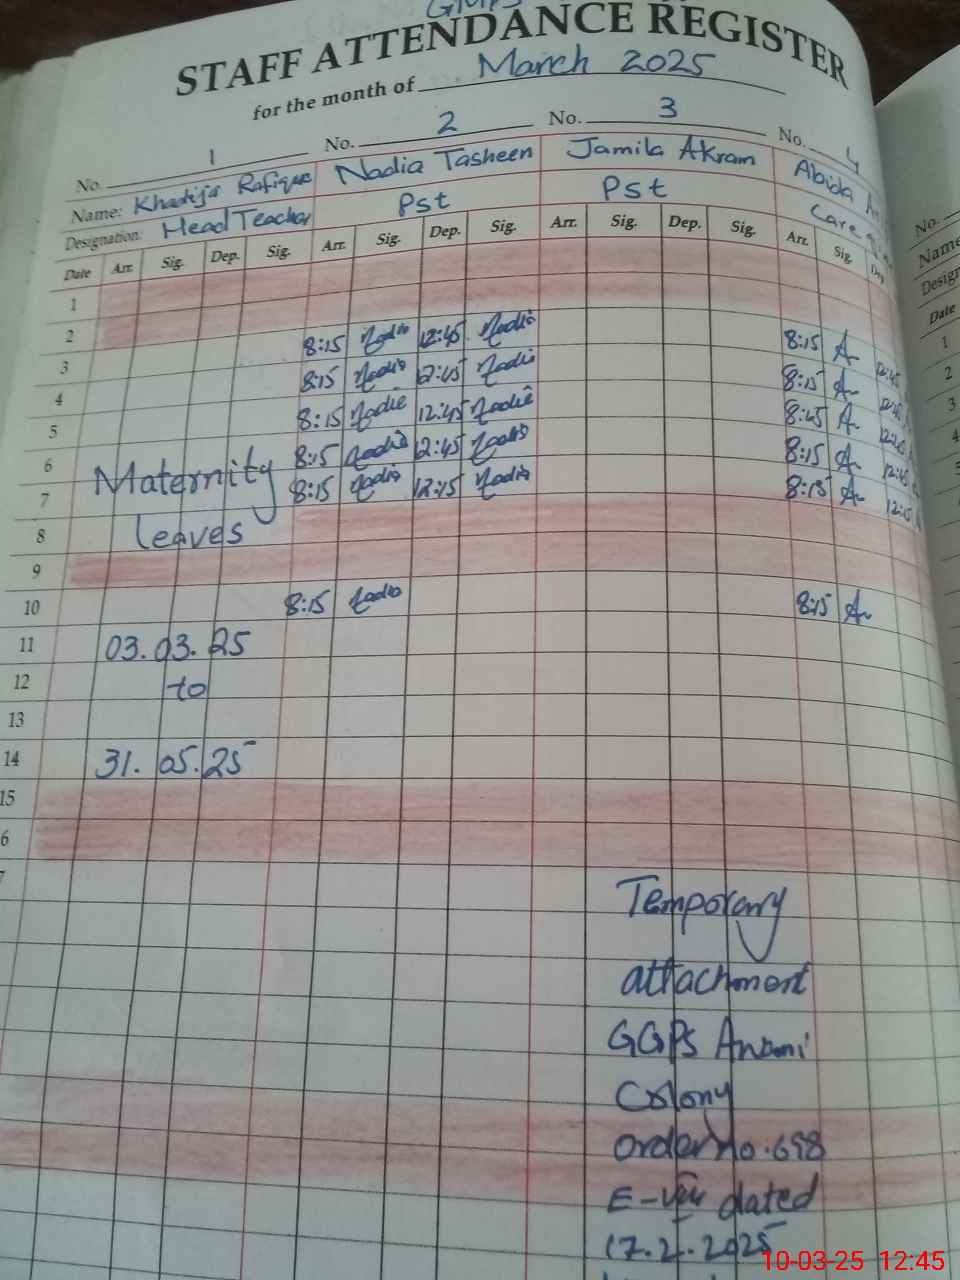 STAFF ATTENDANCE REGISTER
for the month of March 2025
No. 1 No. 2 No. 3 No. 4
Name: Khadija Rafique Nadia Tasheen Jamila Akram Abida
Designation: Head Teacher Pst Pst Care
Date Arr. Sig. Dep. Sig. Arr. Sig. Dep. Sig. Arr. Sig. Dep. Sig. Arr. Sig. Dep
1
2
3 8:15 Nadia 12:45 Nadia 8:15 A 12:45
4 8:15 Nadia 12:45 Nadia 8:15 A 12:45
5 8:15 Nadia 12:45 Nadia 8:15 A 12:45
6 8:15 Nadia 12:45 Nadia 8:15 A 12:45
7 Maternity 8:15 Nadia 12:15 Nadia 8:15 A 12:15
8 leaves
9
10 8:15 Nadia 8:15 A
11 03.03.25
12 to
13
14 31.05.25
15
6
7
Temporary
attachment
GGPS Awami
Colony
order no. 698
dated
17.2.2025
No.
Name
Design
Date
1
2
3
4
5
6
10-03-25 12:45